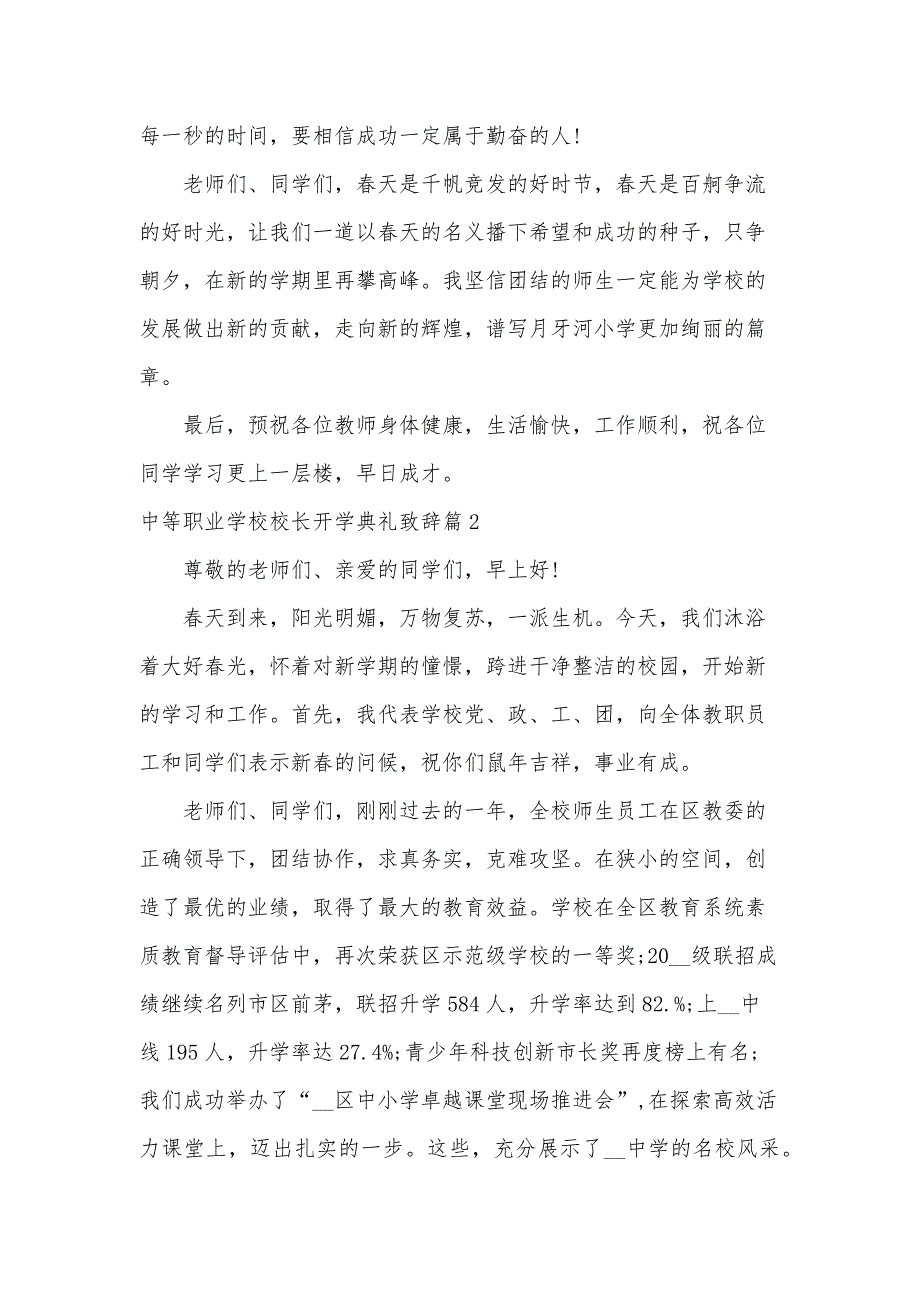 每一秒的时间，要相信成功一定属于勤奋的人!
老师们、同学们，春天是千帆竞发的好时节，春天是百舸争流
的好时光，让我们一道以春天的名义播下希望和成功的种子，只争
朝夕，在新的学期里再攀高峰。我坚信团结的师生一定能为学校的
发展做出新的贡献，走向新的辉煌，谱写月牙河小学更加绚丽的篇
章。
最后，预祝各位教师身体健康，生活愉快，工作顺利，祝各位
同学学习更上一层楼，早日成才。
中等职业学校校长开学典礼致辞篇 2
尊敬的老师们、亲爱的同学们，早上好!
春天到来，阳光明媚，万物复苏，一派生机。今天，我们沐浴
着大好春光，怀着对新学期的憧憬，跨进干净整洁的校园，开始新
的学习和工作。首先，我代表学校党、政、工、团，向全体教职员
工和同学们表示新春的问候，祝你们鼠年吉祥，事业有成。
老师们、同学们，刚刚过去的一年，全校师生员工在区教委的
正确领导下，团结协作，求真务实，克难攻坚。在狭小的空间，创
造了最优的业绩，取得了最大的教育效益。学校在全区教育系统素
质教育督导评估中，再次荣获区示范级学校的一等奖;20__级联招成
绩继续名列市区前茅，联招升学 584 人，升学率达到 82.%;上__中
线 195 人，升学率达 27.4%;青少年科技创新市长奖再度榜上有名;
我们成功举办了“__区中小学卓越课堂现场推进会”,在探索高效活
力课堂上，迈出扎实的一步。这些，充分展示了__中学的名校风采。